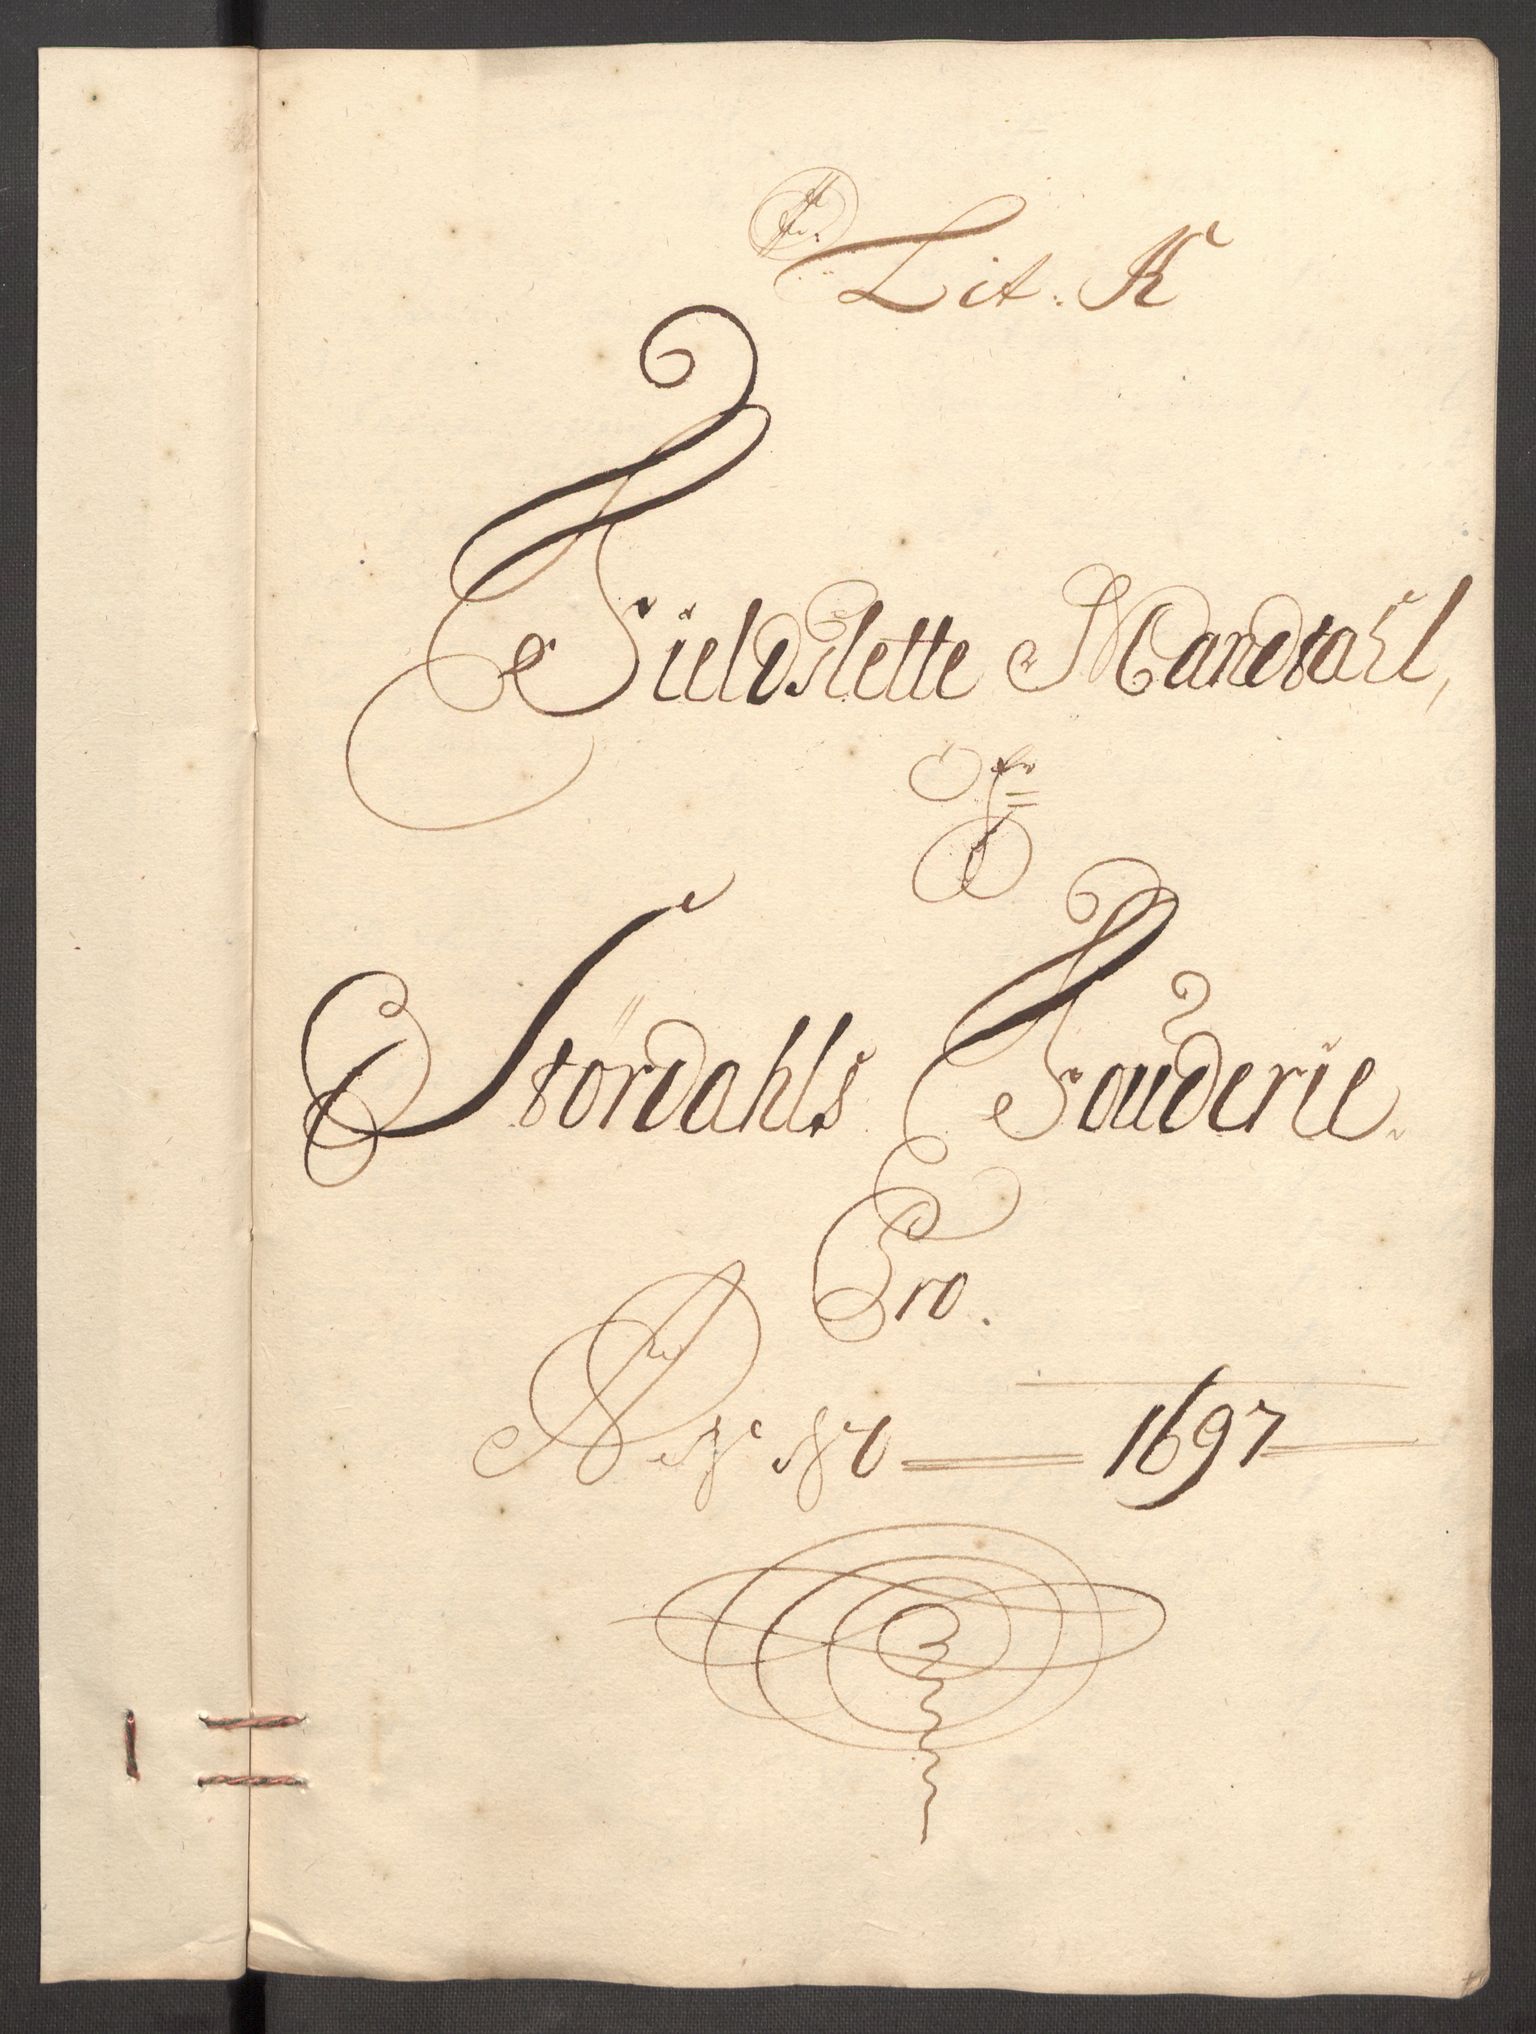 Lit. K
Fieldslette Mandtahl,
Af
Stördahls Fouderie.
Pro.
Anno 1697